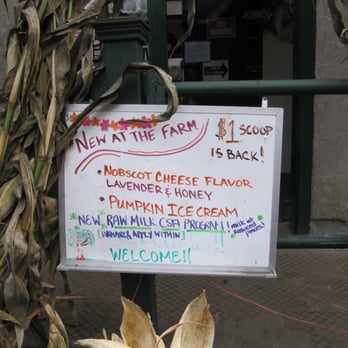 NEW AT THE FARM
$1 SCOOP
IS BACK!
• NOBSCOT CHEESE FLAVOR
LAVENDER & HONEY
• PUMPKIN ICE CREAM
*NEW RAW MILK CSA PROGRAM! milk at
APPLY WITHIN]
WELCOME!!